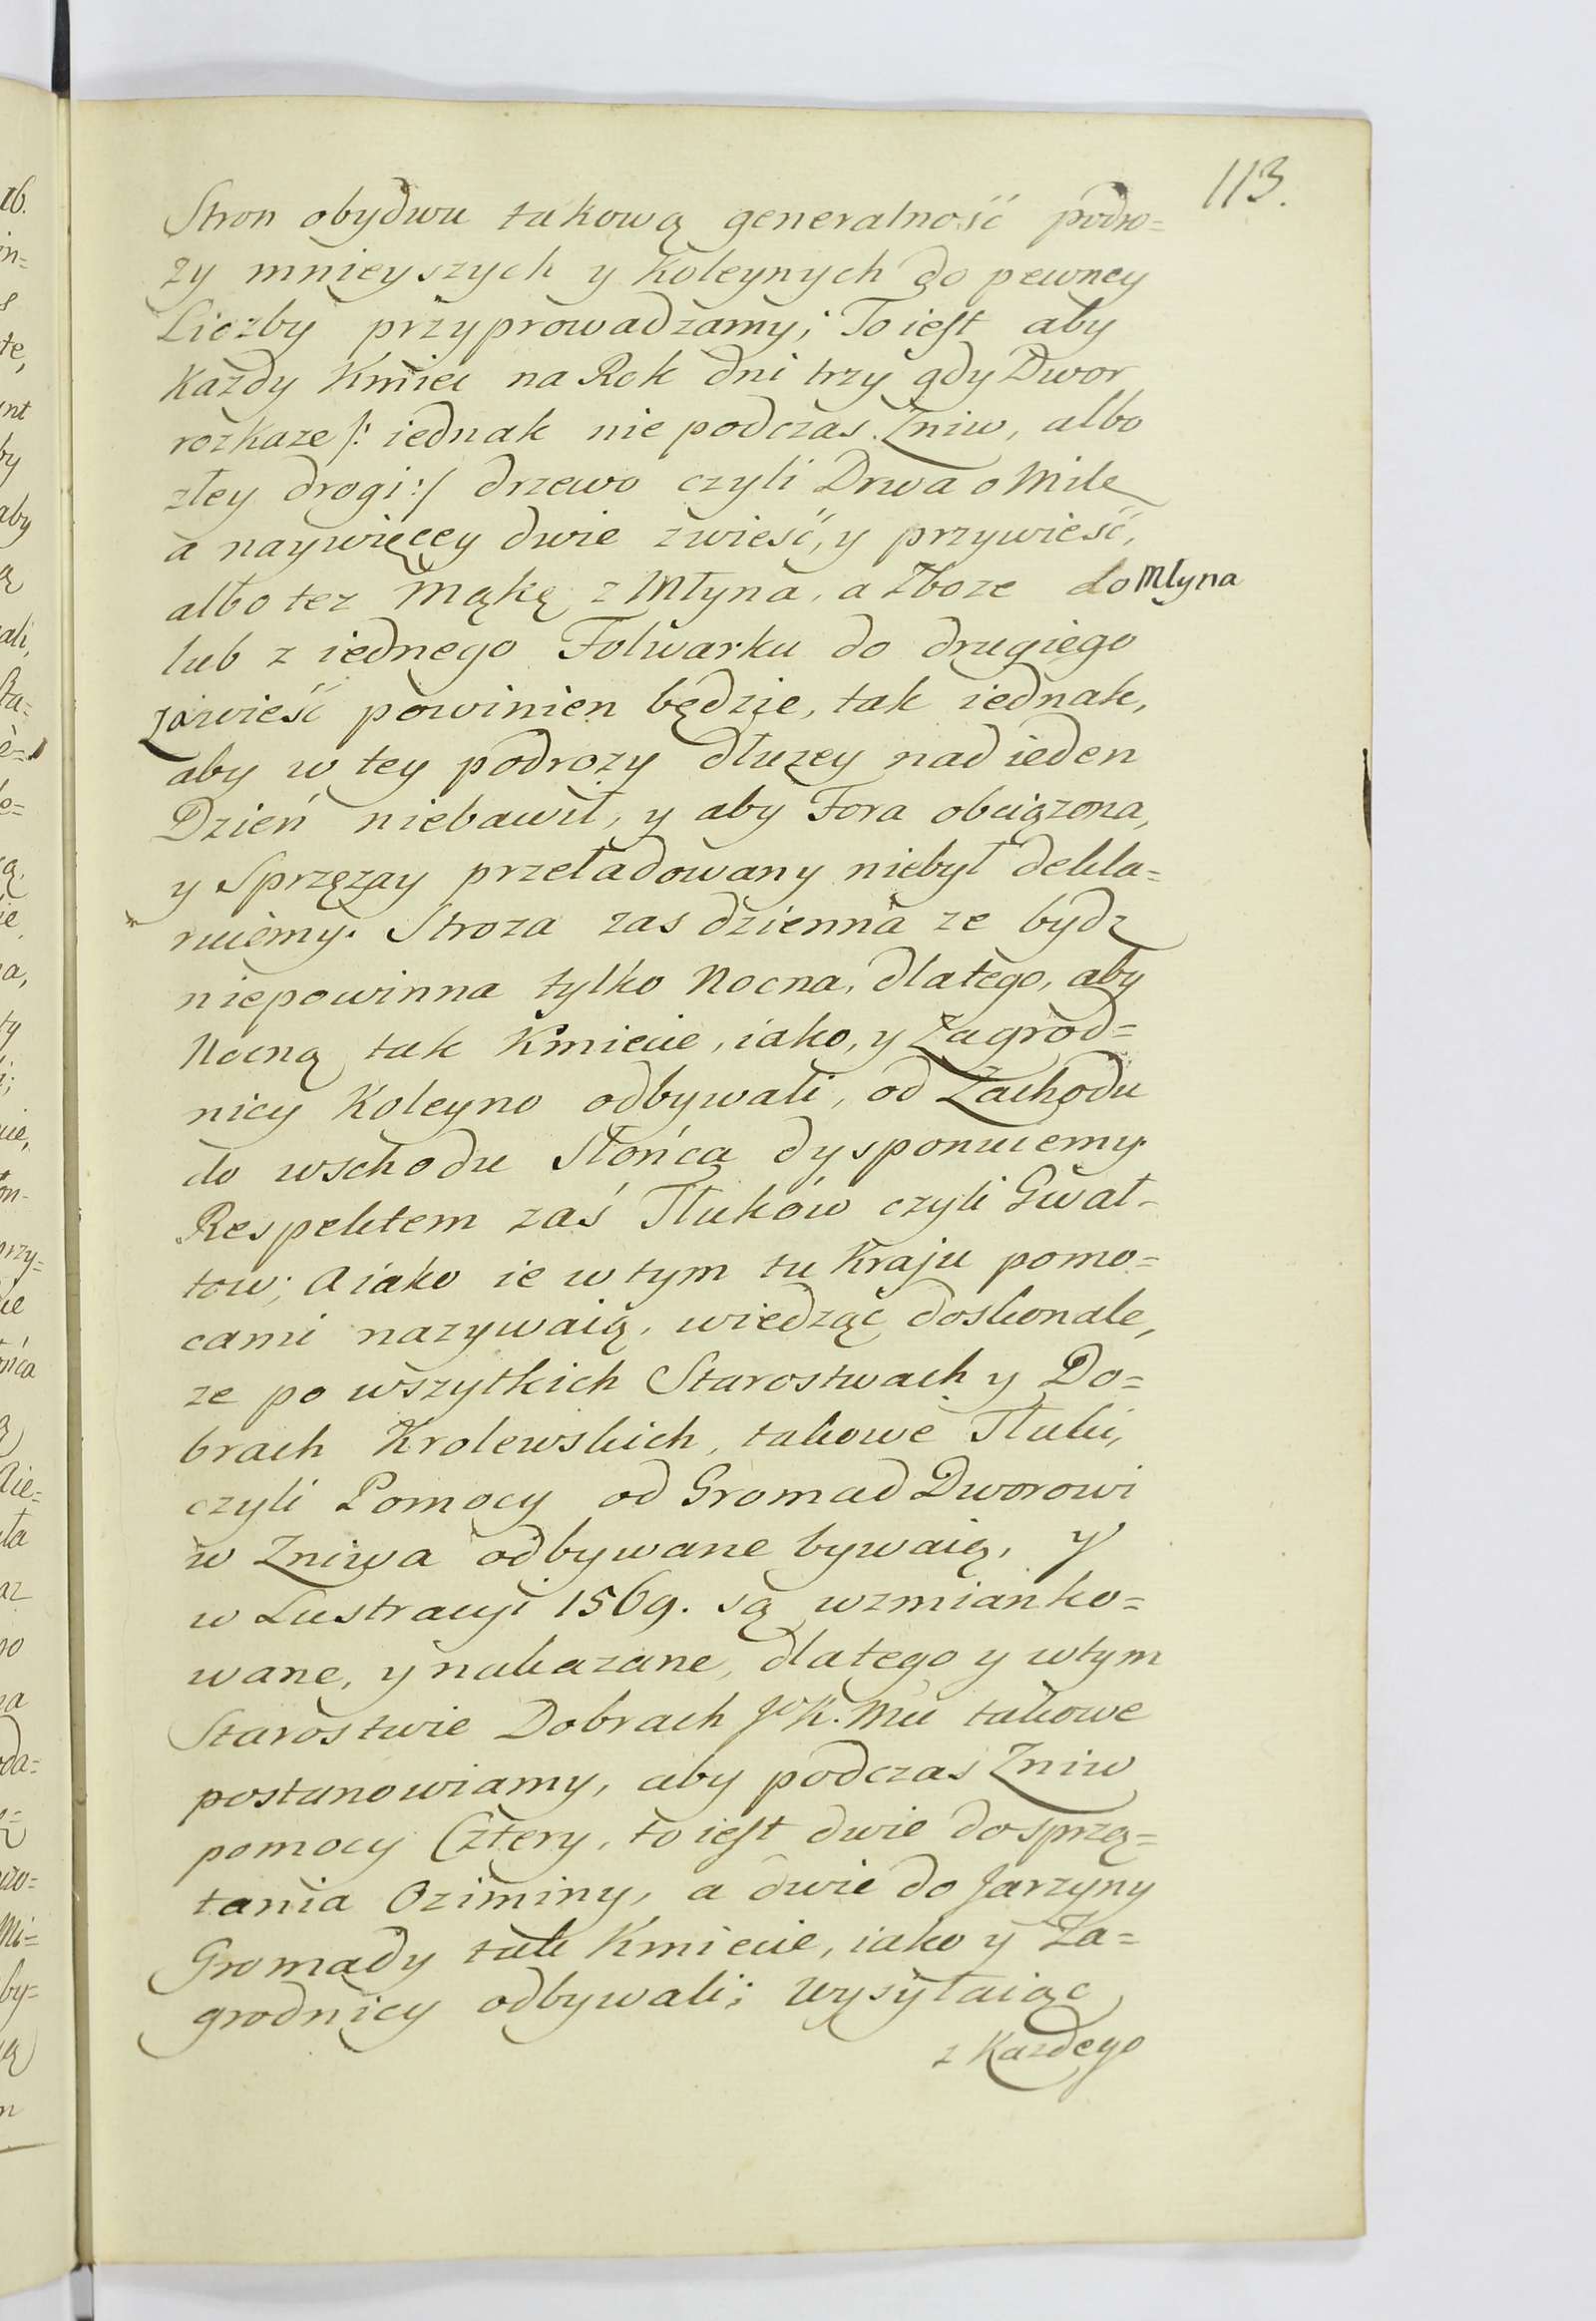 113.
Stron obydwu takową generalność podro=
zy mnieyszych y Koleynych do pewney
Liczby przyprowadzamy; To iest aby
Kazdy Kmiec na Rok dni trzy gdy Dwor
rozkaze /: iednak nie podczas Zniw, albo
złey drogi :/ drzewo czyli Drwa o Mile
a naywięcey dwie zwieść, y przywieść,
albo tez Mąkę z Młyna, a Zboze do Młyna
lub z iednego Folwarku do drugiego
zawieść powinien będzie, tak iednak,
aby w tey podrozy dłuzey nad ieden
Dzień niebawił, y aby Fora obciązona,
y Sprzęzay przeładowany niebył dekla=
ruiemy. Stroza zas dzienna ze bydz
niepowinna tylko Nocna, dlatego, aby
Nocną tak Kmiecie, iako, y Zagrod=
nicy Koleyno odbywali, od Zachodu
do wschodu Słońca dysponuiemy.
Respektem zaś Tłuków czyli Gwał-
tow; A iako ie w tym tu Kraju pomo=
cami nazywaią, wiedząc doskonale,
ze po wszytkich Starostwach y Do=
brach Krolewskich, takowe Tłuki,
czyli Pomocy od Gromad Dworowi
w Zniwa odbywane bywaią, y
w Lustracyi 1569. są wzmianko=
wane, y nakazane, dlatego y wtym
Starostwie Dobrach J K. Mci takowe
postanowiamy, aby podczas Zniw
pomocy Cztery, to iest dwie do sprzą=
tania Oziminy, a dwie do Jarzyny
Gromady tak Kmiecie, iako y Za=
grodnicy odbywali; Wysyłaiąc
z Kazdego